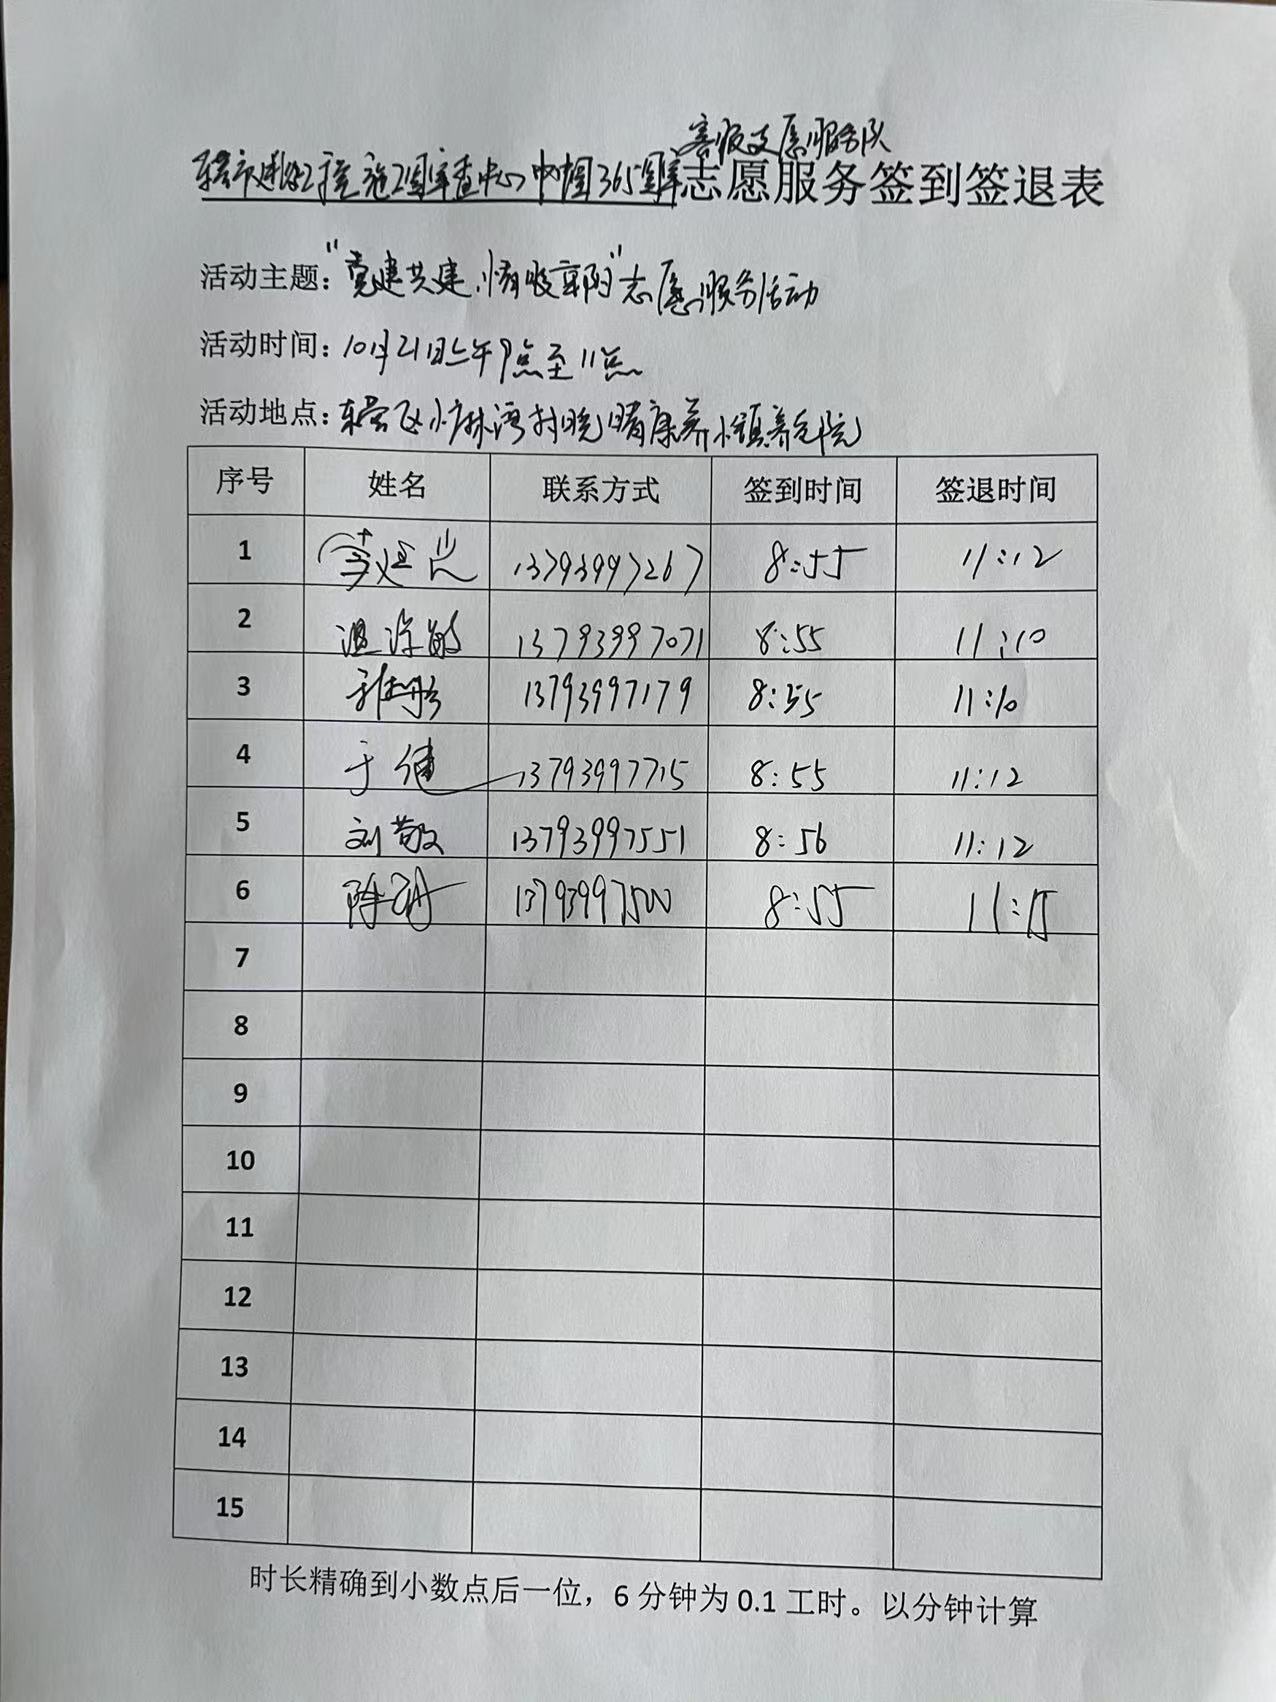 志愿服务队
东营市建设工程施工图审查中心巾帼365 志愿服务签到签退表
活动主题："党建共建,情暖重阳"志愿服务活动
活动时间：10月21日上午9点至11点
活动地点：东营区小麻湾村晚晴康养小镇养老院
序号 姓名 联系方式 签到时间 签退时间
1 13793997267 8:55 11:12
2 温 敏 13793997071 8:55 11:10
3 13793997179 8:55 11:10
4 于健 13793997715 8:55 11:12
5 刘敬 13793997551 8:56 11:12
6 陈 13793997500 8:55 11:15
7
8
9
10
11
12
13
14
15
时长精确到小数点后一位，6 分钟为 0.1 工时。以分钟计算